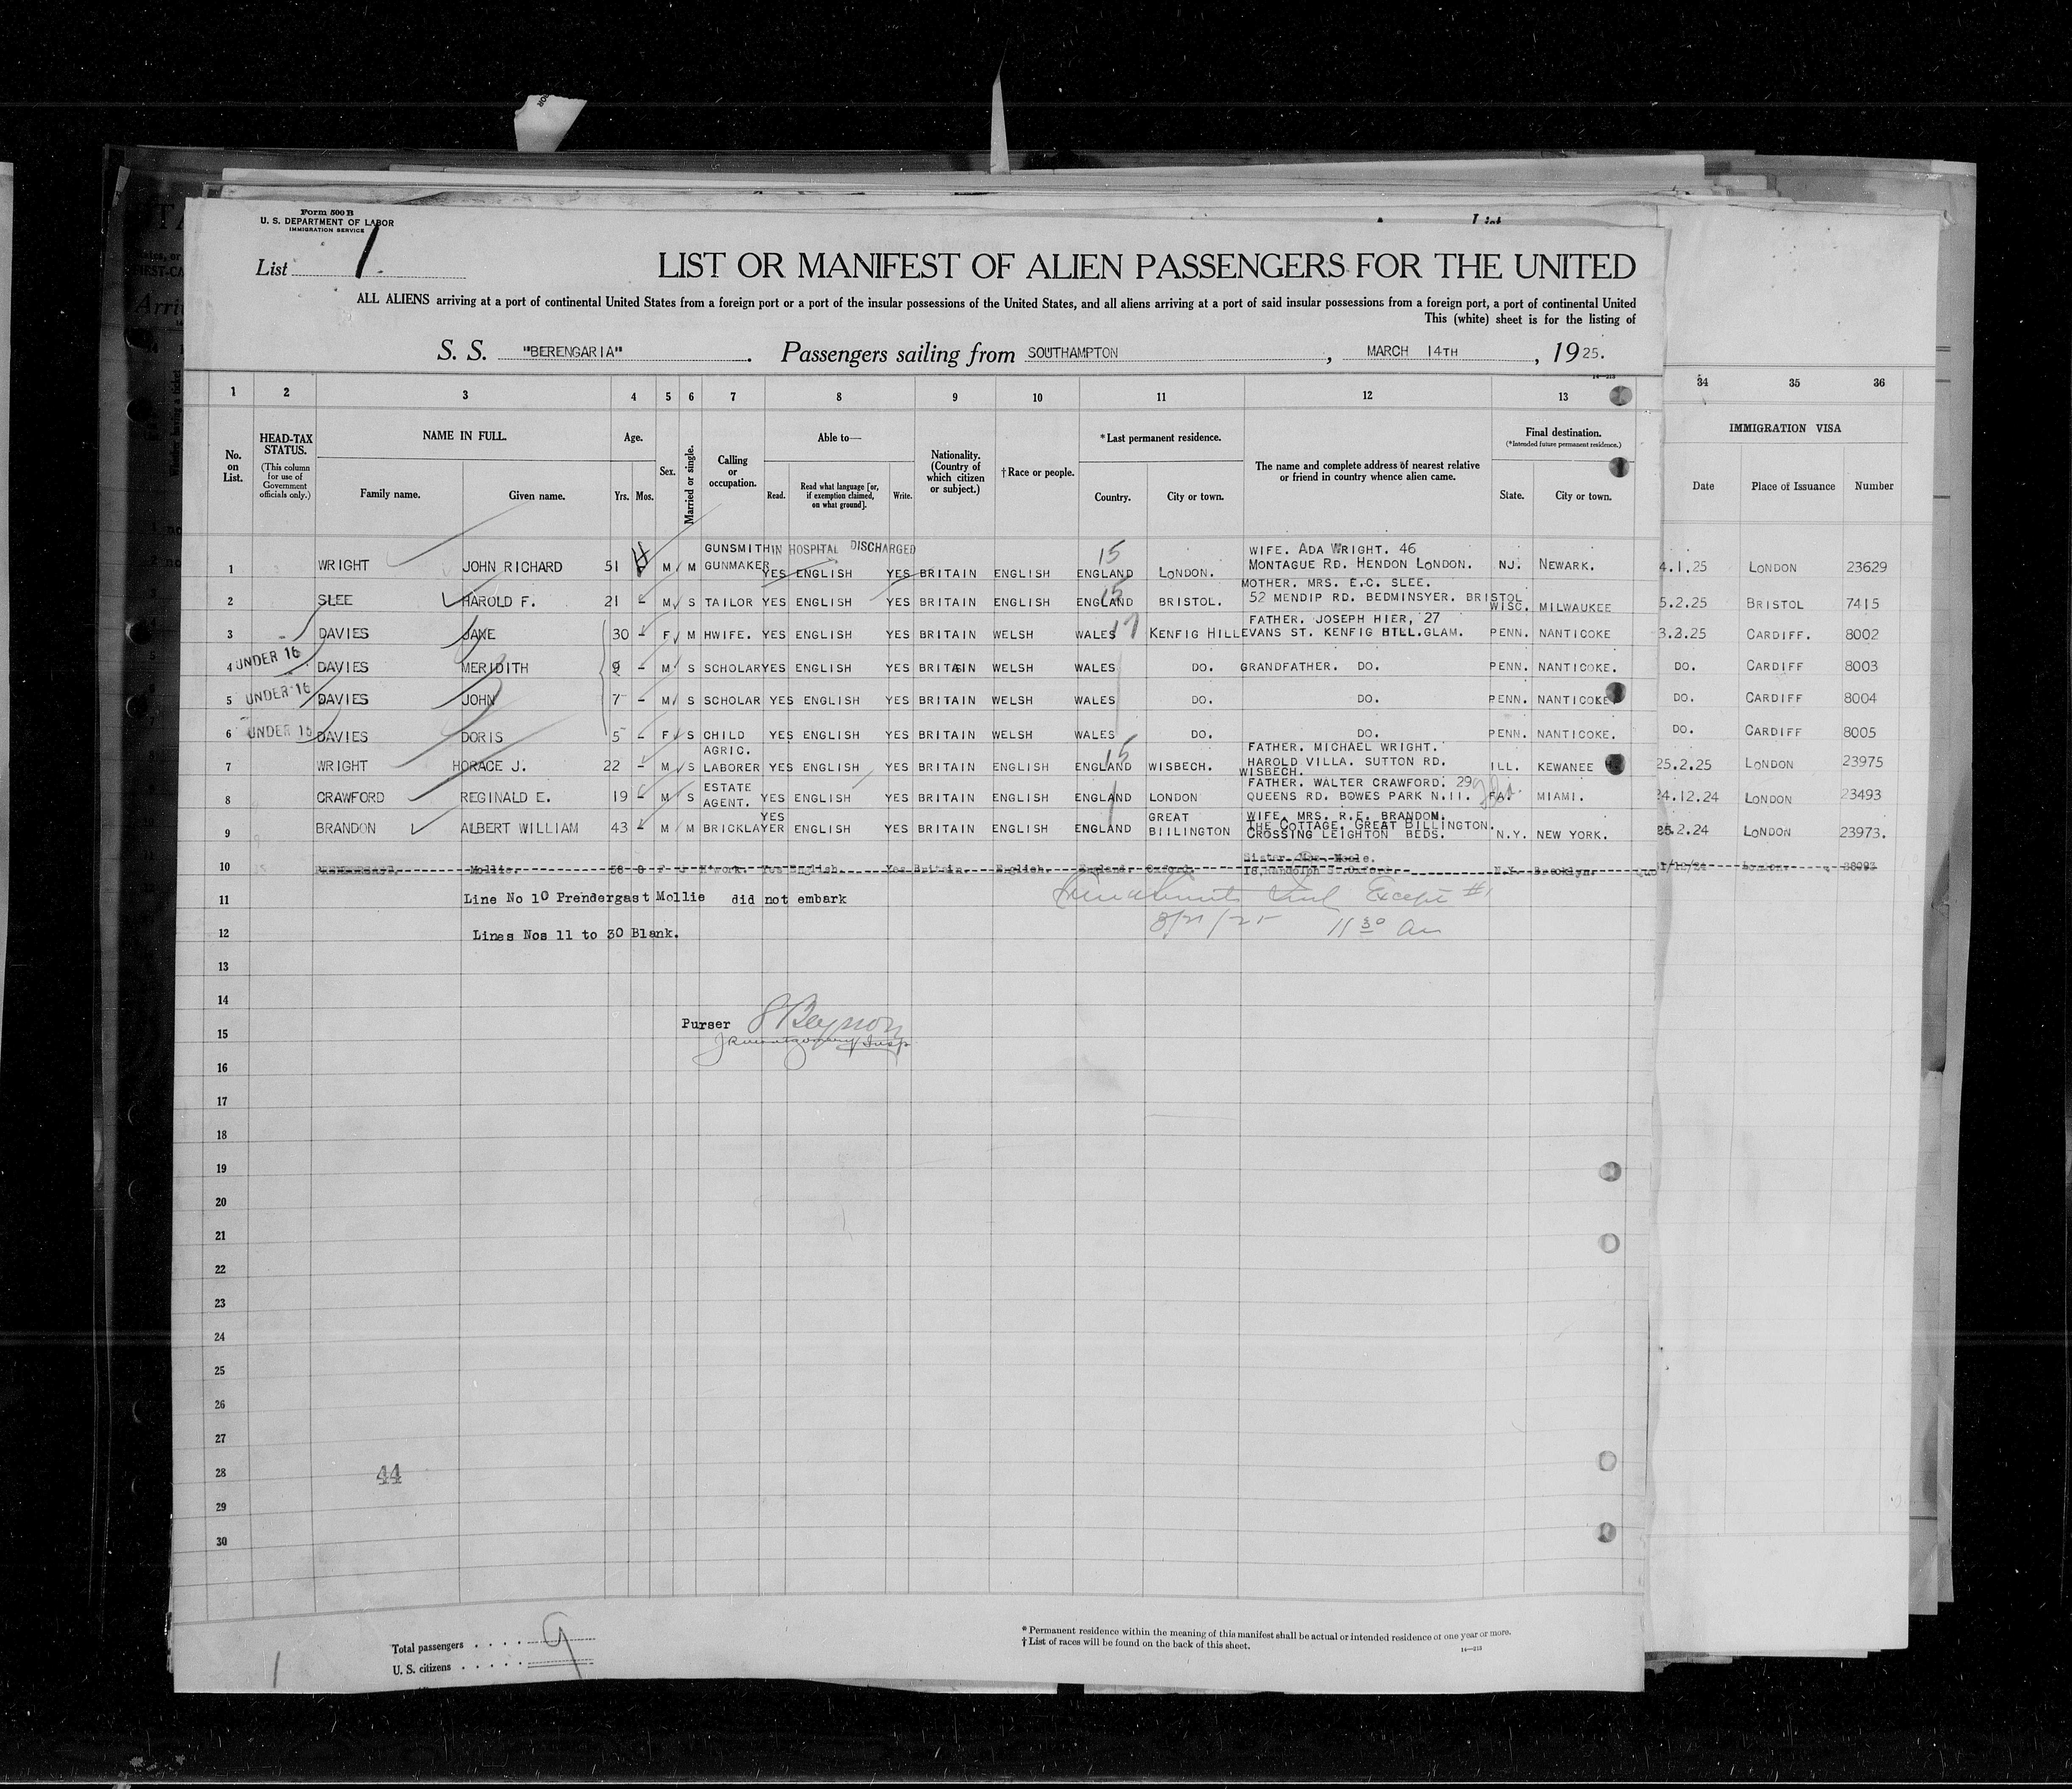 Form 500 B
U. S. DEPARTMENT OF LABOR
IMMIGRATION SERVICE
List 1.
LIST OR MANIFEST OF ALIEN PASSENGERS FOR THE UNITED
ALL ALIENS arriving at a port of continental United States from a foreign port or a port of the insular possessions of the United States, and all aliens arriving at a port of said insular possessions from a foreign port, a port of continental United
This (white) sheet is for the listing of
S. S. "BERENGARIA". Passengers sailing from SOUTHAMPTON, MARCH 14TH, 1925.
1 2 3 4 5 6 7 8 9 10 11 12 13 34 35 36
No. on List.
HEAD-TAX STATUS.
(This column for use of Government officials only.)
NAME IN FULL.
Family name. Given name.
Age.
Yrs. Mos.
Sex.
Married or single.
Calling or occupation.
Able to—
Read. Read what language [or, if exemption claimed, on what ground]. Write.
Nationality. (Country of which citizen or subject.)
†Race or people.
*Last permanent residence.
Country. City or town.
The name and complete address of nearest relative or friend in country whence alien came.
Final destination.
(*Intended future permanent residence.)
State. City or town.
IMMIGRATION VISA
Date Place of Issuance Number
IN HOSPITAL DISCHARGED
1 WRIGHT JOHN RICHARD 51 M M GUNSMITH GUNMAKER YES ENGLISH YES BRITAIN ENGLISH 15 ENGLAND LONDON. WIFE. ADA WRIGHT. 46 MONTAGUE RD. HENDON LONDON. NJ. NEWARK. 4.1.25 LONDON 23629
2 SLEE HAROLD F. 21 - M S TAILOR YES ENGLISH YES BRITAIN ENGLISH 15 ENGLAND BRISTOL. MOTHER. MRS. E.C. SLEE. 52 MENDIP RD. BEDMINSYER. BRISTOL WISC. MILWAUKEE 5.2.25 BRISTOL 7415
3 DAVIES JANE 30 - F M HWIFE. YES ENGLISH YES BRITAIN WELSH WALES 17 KENFIG HILL FATHER. JOSEPH HIER, 27 EVANS ST. KENFIG HILL.GLAM. PENN. NANTICOKE 3.2.25 CARDIFF. 8002
4 UNDER 16 DAVIES MERIDITH 9 - M S SCHOLAR YES ENGLISH YES BRITAIN WELSH WALES DO. GRANDFATHER. DO. PENN. NANTICOKE. DO. CARDIFF 8003
5 UNDER 16 DAVIES JOHN 7 - M S SCHOLAR YES ENGLISH YES BRITAIN WELSH WALES DO. DO. PENN. NANTICOKE. DO. CARDIFF 8004
6 UNDER 16 DAVIES DORIS 5 - F S CHILD YES ENGLISH YES BRITAIN WELSH WALES DO. DO. PENN. NANTICOKE. DO. CARDIFF 8005
7 WRIGHT HORACE J. 22 - M S AGRIC. LABORER YES ENGLISH YES BRITAIN ENGLISH 15 ENGLAND WISBECH. FATHER. MICHAEL WRIGHT. HAROLD VILLA. SUTTON RD. WISBECH. ILL. KEWANEE 25.2.25 LONDON 23975
8 CRAWFORD REGINALD E. 19 - M S ESTATE AGENT. YES ENGLISH YES BRITAIN ENGLISH ENGLAND LONDON FATHER. WALTER CRAWFORD. 29 QUEENS RD. BOWES PARK N.11. FA. MIAMI. 24.12.24 LONDON 23493
9 BRANDON ALBERT WILLIAM 43 - M M BRICKLAYER YES ENGLISH YES BRITAIN ENGLISH ENGLAND GREAT BIILINGTON WIFE. MRS. R.E. BRANDOM. THE COTTAGE. GREAT BILLINGTON. CROSSING LEIGHTON BEDS. N.Y. NEW YORK. 25.2.24 LONDON 23973.
10 Mollie. 58 F H'work. Yes English. Yes Britain. English. England. Oxford. Sister. Mrs. Neale. 18, Randolph St. Oxford. N.Y. Brooklyn. London.
11 Line No 10 Prendergast Mollie did not embark
Except #1
12 Lines Nos 11 to 30 Blank.
3/21/25 11 30 am
13
14
15 Purser
JRMontgomery Insp
16
17
18
19
20
21
22
23
24
25
26
27
28 44
29
30
Total passengers . . . . 9
U. S. citizens . . . . .
1
* Permanent residence within the meaning of this manifest shall be actual or intended residence of one year or more.
† List of races will be found on the back of this sheet.